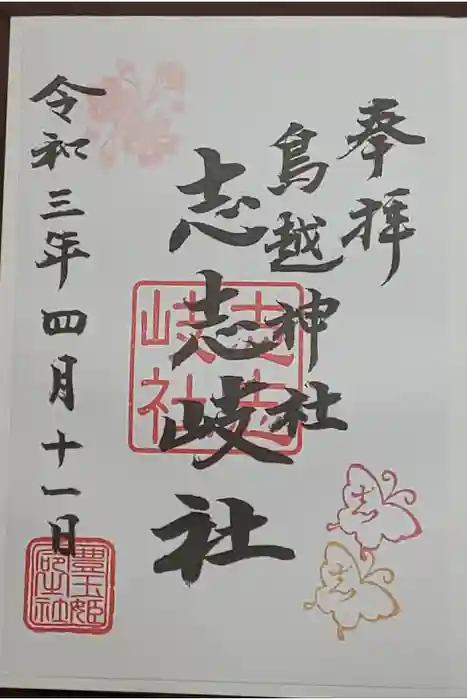 奉拝
鳥越神社
志志岐社
志志岐社
令和三年四月十一日
豊玉姫
志
志